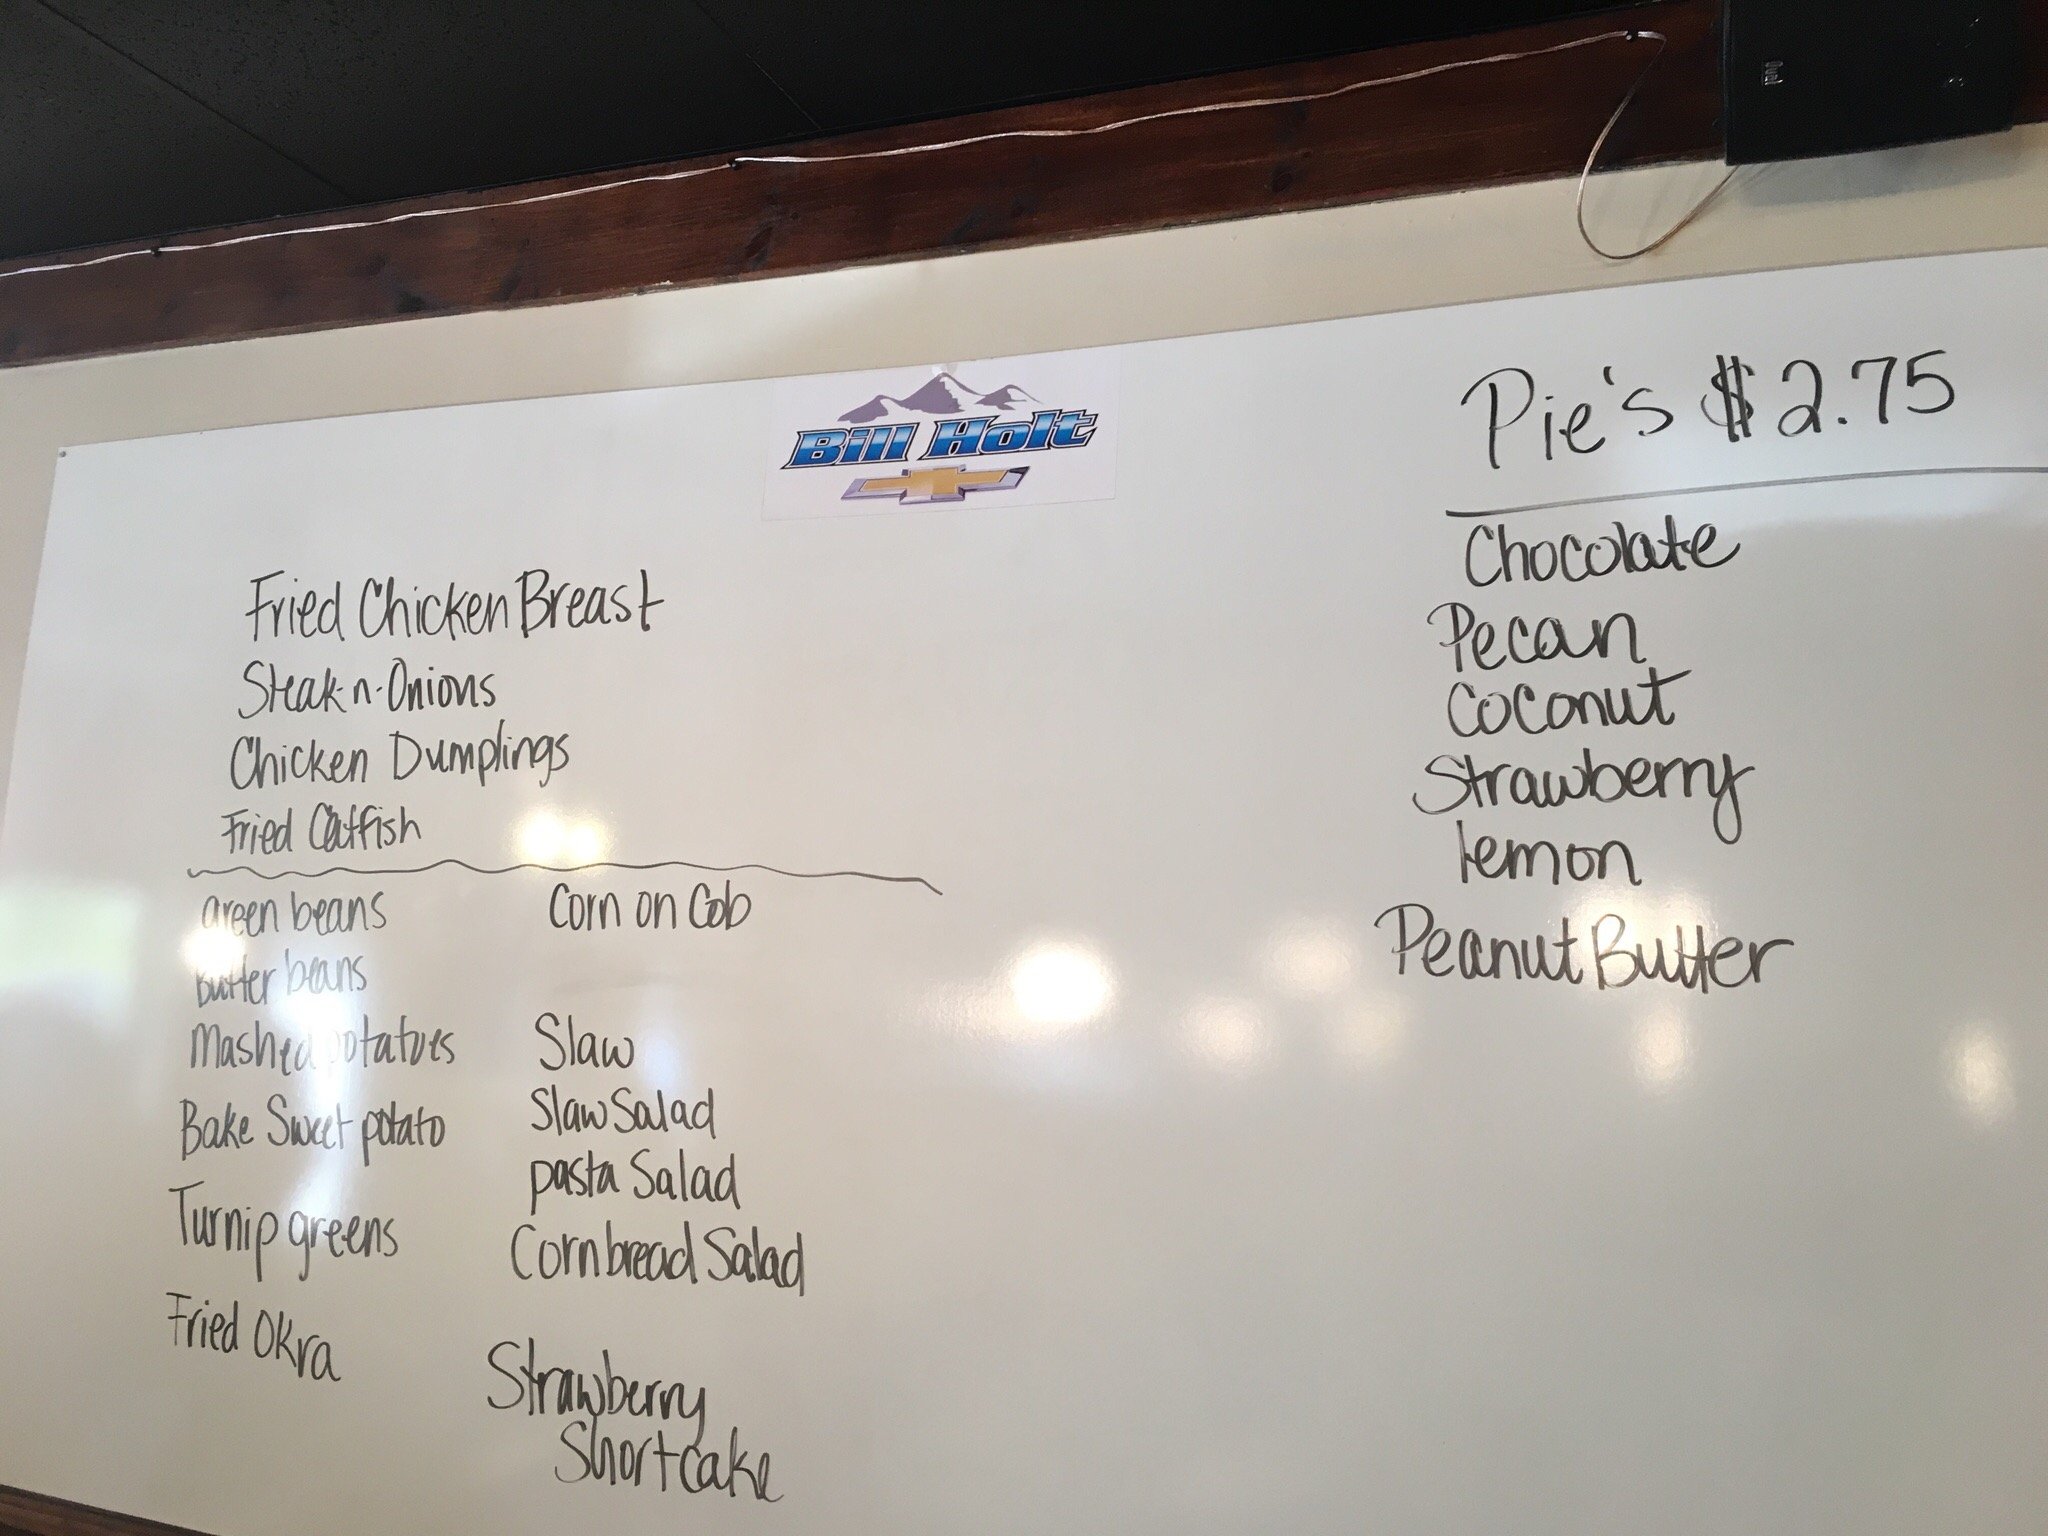 Dual
Bill Holt
Pie's $2.75
Chocolate
Pecan
Coconut
Strawberry
lemon
Peanut Butter
Fried Chicken Breast
Steak-n-Onions
Chicken Dumplings
Fried Catfish
green beans
Butter beans
Mashed potatoes
Bake Sweet potato
Turnip greens
Fried Okra
Corn on Cob
Slaw
Slaw Salad
pasta Salad
Cornbread Salad
Strawberry
Shortcake